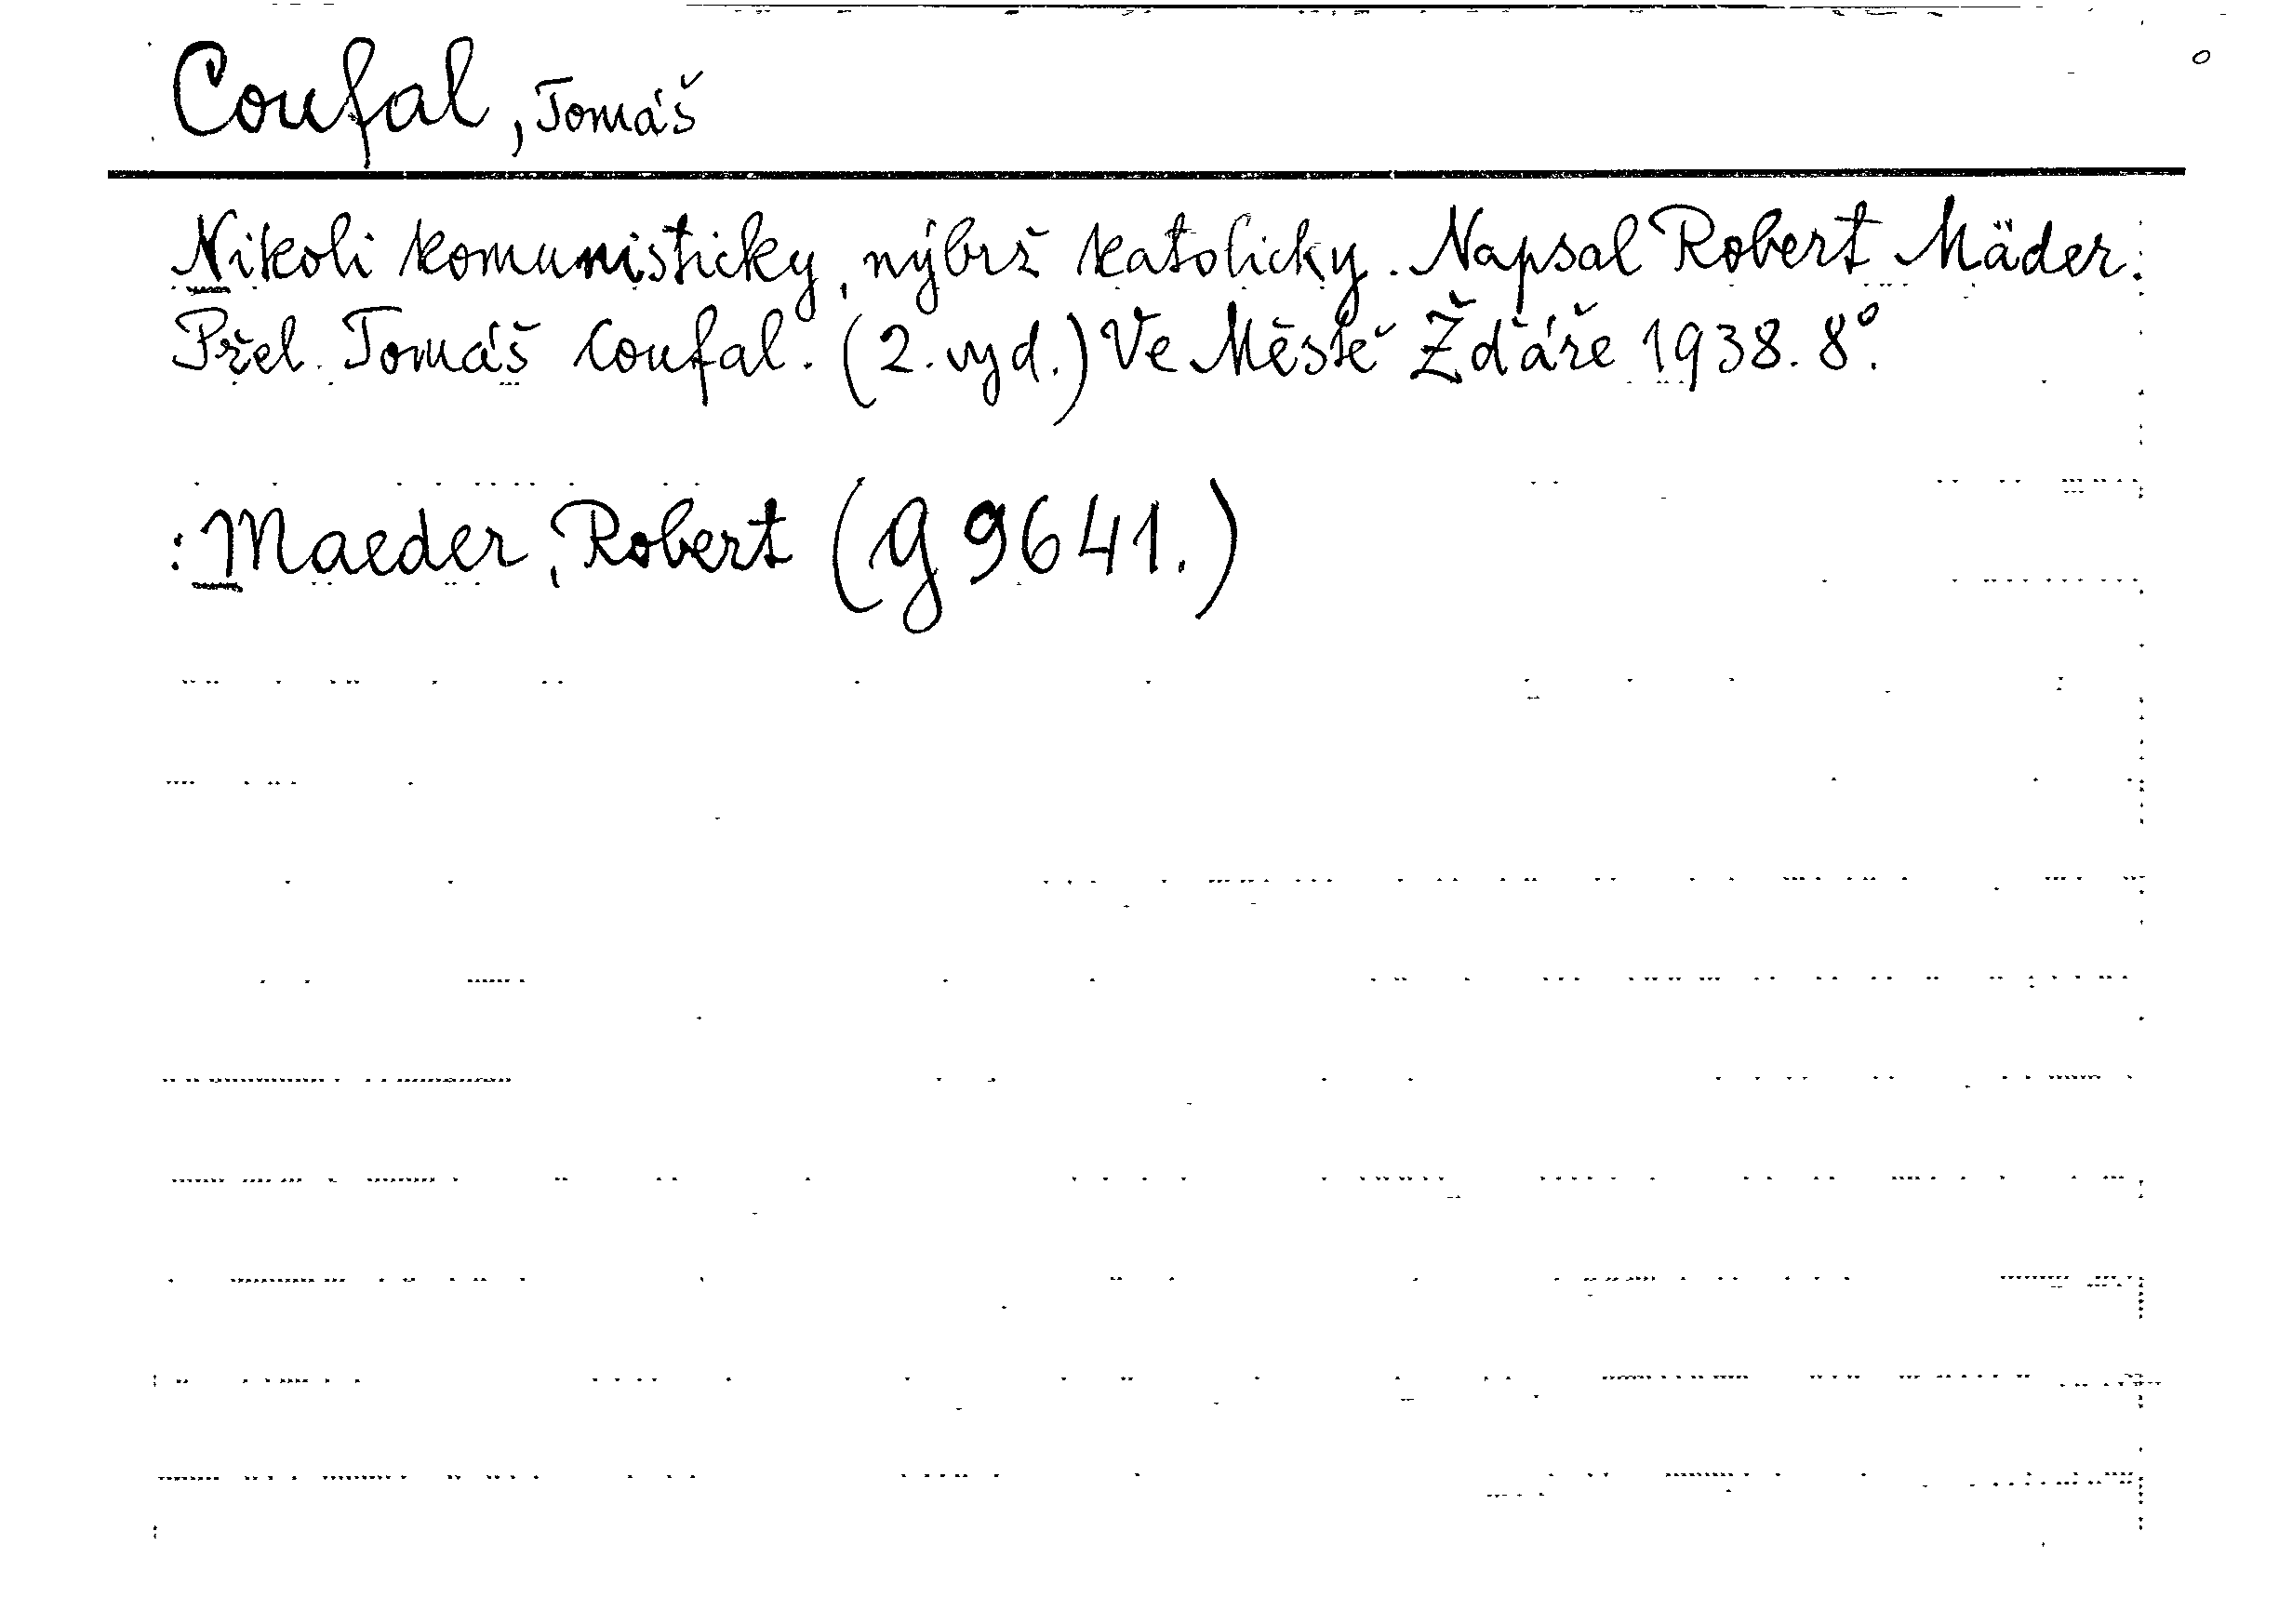 Coufal, Tomáš
Nikoli komunisticky, nýbrž katolicky. Napsal Robert Mäder.
Přel. Tomáš Coufal. (2. vyd.) Ve Městě Žďáře 1938. 8°.
: Maeder, Robert (g 9641.)